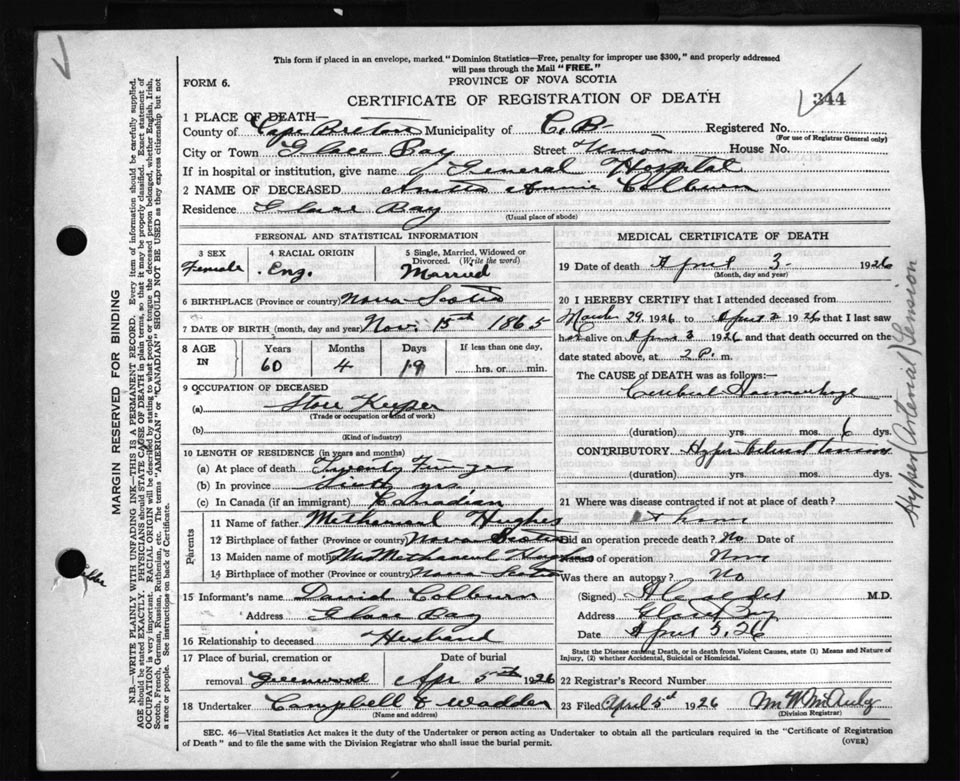 This form if placed in an envelope, marked "Dominion Statistics—Free, penalty for improper use $300," and properly addressed
will pass through the Mail "FREE."
FORM 6.
PROVINCE OF NOVA SCOTIA
CERTIFICATE OF REGISTRATION OF DEATH
344
1 PLACE OF DEATH—
County of Cape Breton Municipality of C. B- Registered No.
(For use of Registrar General only)
City or Town Glace Bay Street Union House No.
If in hospital or institution, give name General Hospital
2 NAME OF DECEASED Annie Colburn
Residence Glace Bay
(Usual place of abode)
PERSONAL AND STATISTICAL INFORMATION
3 SEX
Female
4 RACIAL ORIGIN
Eng.
5 Single, Married, Widowed or
Divorced. (Write the word)
Married
6 BIRTHPLACE (Province or country) Nova Scotia
7 DATE OF BIRTH (month, day and year) Nov. 15th 1865
8 AGE IN
Years Months Days If less than one day,
60 4 19 hrs. or min.
9 OCCUPATION OF DECEASED
(a) Store Keeper
(Trade or occupation or kind of work)
(b)
(Kind of industry)
10 LENGTH OF RESIDENCE (in years and months)
(a) At place of death Twenty yrs
(b) In province Sixty yrs.
(c) In Canada (if an immigrant) Canadian
Parents
11 Name of father Methanaul Hughes
12 Birthplace of father (Province or country) Nova Scotia
13 Maiden name of mother Mrs Methanaul Hughes
14 Birthplace of mother (Province or country) Nova Scotia
15 Informant's name David Colburn
Address Glace Bay
16 Relationship to deceased Husband
17 Place of burial, cremation or Date of burial
removal Greenwood Apr 5th 1926
18 Undertaker Campbell & Wadden
(Name and address)
MEDICAL CERTIFICATE OF DEATH
19 Date of death April 3- 1926
(Month, day and year)
20 I HEREBY CERTIFY that I attended deceased from
March 29. 1926 to April 2 1926 that I last saw
her alive on April 3 1926 and that death occurred on the
date stated above, at 2 P. m.
The CAUSE of DEATH was as follows:
Cerebral Hemorrhage
(duration) yrs. mos. 6 dys.
CONTRIBUTORY. Hyper tension
(duration) yrs. mos. dys.
21 Where was disease contracted if not at place of death?
At home
Did an operation precede death? No Date of
Nature of operation None
Was there an autopsy? No
(Signed) M.D.
Address Glace Bay
Date April 5, 26
State the Disease causing Death, or in death from Violent Causes, state (1) Means and Nature of
Injury, (2) whether Accidental, Suicidal or Homicidal.
22 Registrar's Record Number
23 Filed April 5th 1926
(Division Registrar)
SEC. 46—Vital Statistics Act makes it the duty of the Undertaker or person acting as Undertaker to obtain all the particulars required in the "Certificate of Registration
of Death" and to file the same with the Division Registrar who shall issue the burial permit.
(OVER)
MARGIN RESERVED FOR BINDING
N.B.—WRITE PLAINLY WITH UNFADING INK—THIS IS A PERMANENT RECORD. Every item of information should be carefully supplied.
AGE should be stated EXACTLY. PHYSICIANS should STATE CAUSE OF DEATH in plain terms, so that it may be properly classified. Exact statement of
OCCUPATION is very important. RACIAL ORIGIN will be described by stating to what people or tongue the deceased person belonged, whether English, Irish,
Scotch, French, German, Russian, Ruthenian, etc. The terms "AMERICAN" or "CANADIAN" SHOULD NOT BE USED as they express citizenship but not
a race or people. See instructions on back of Certificate.
Hyper (Arterial) tension